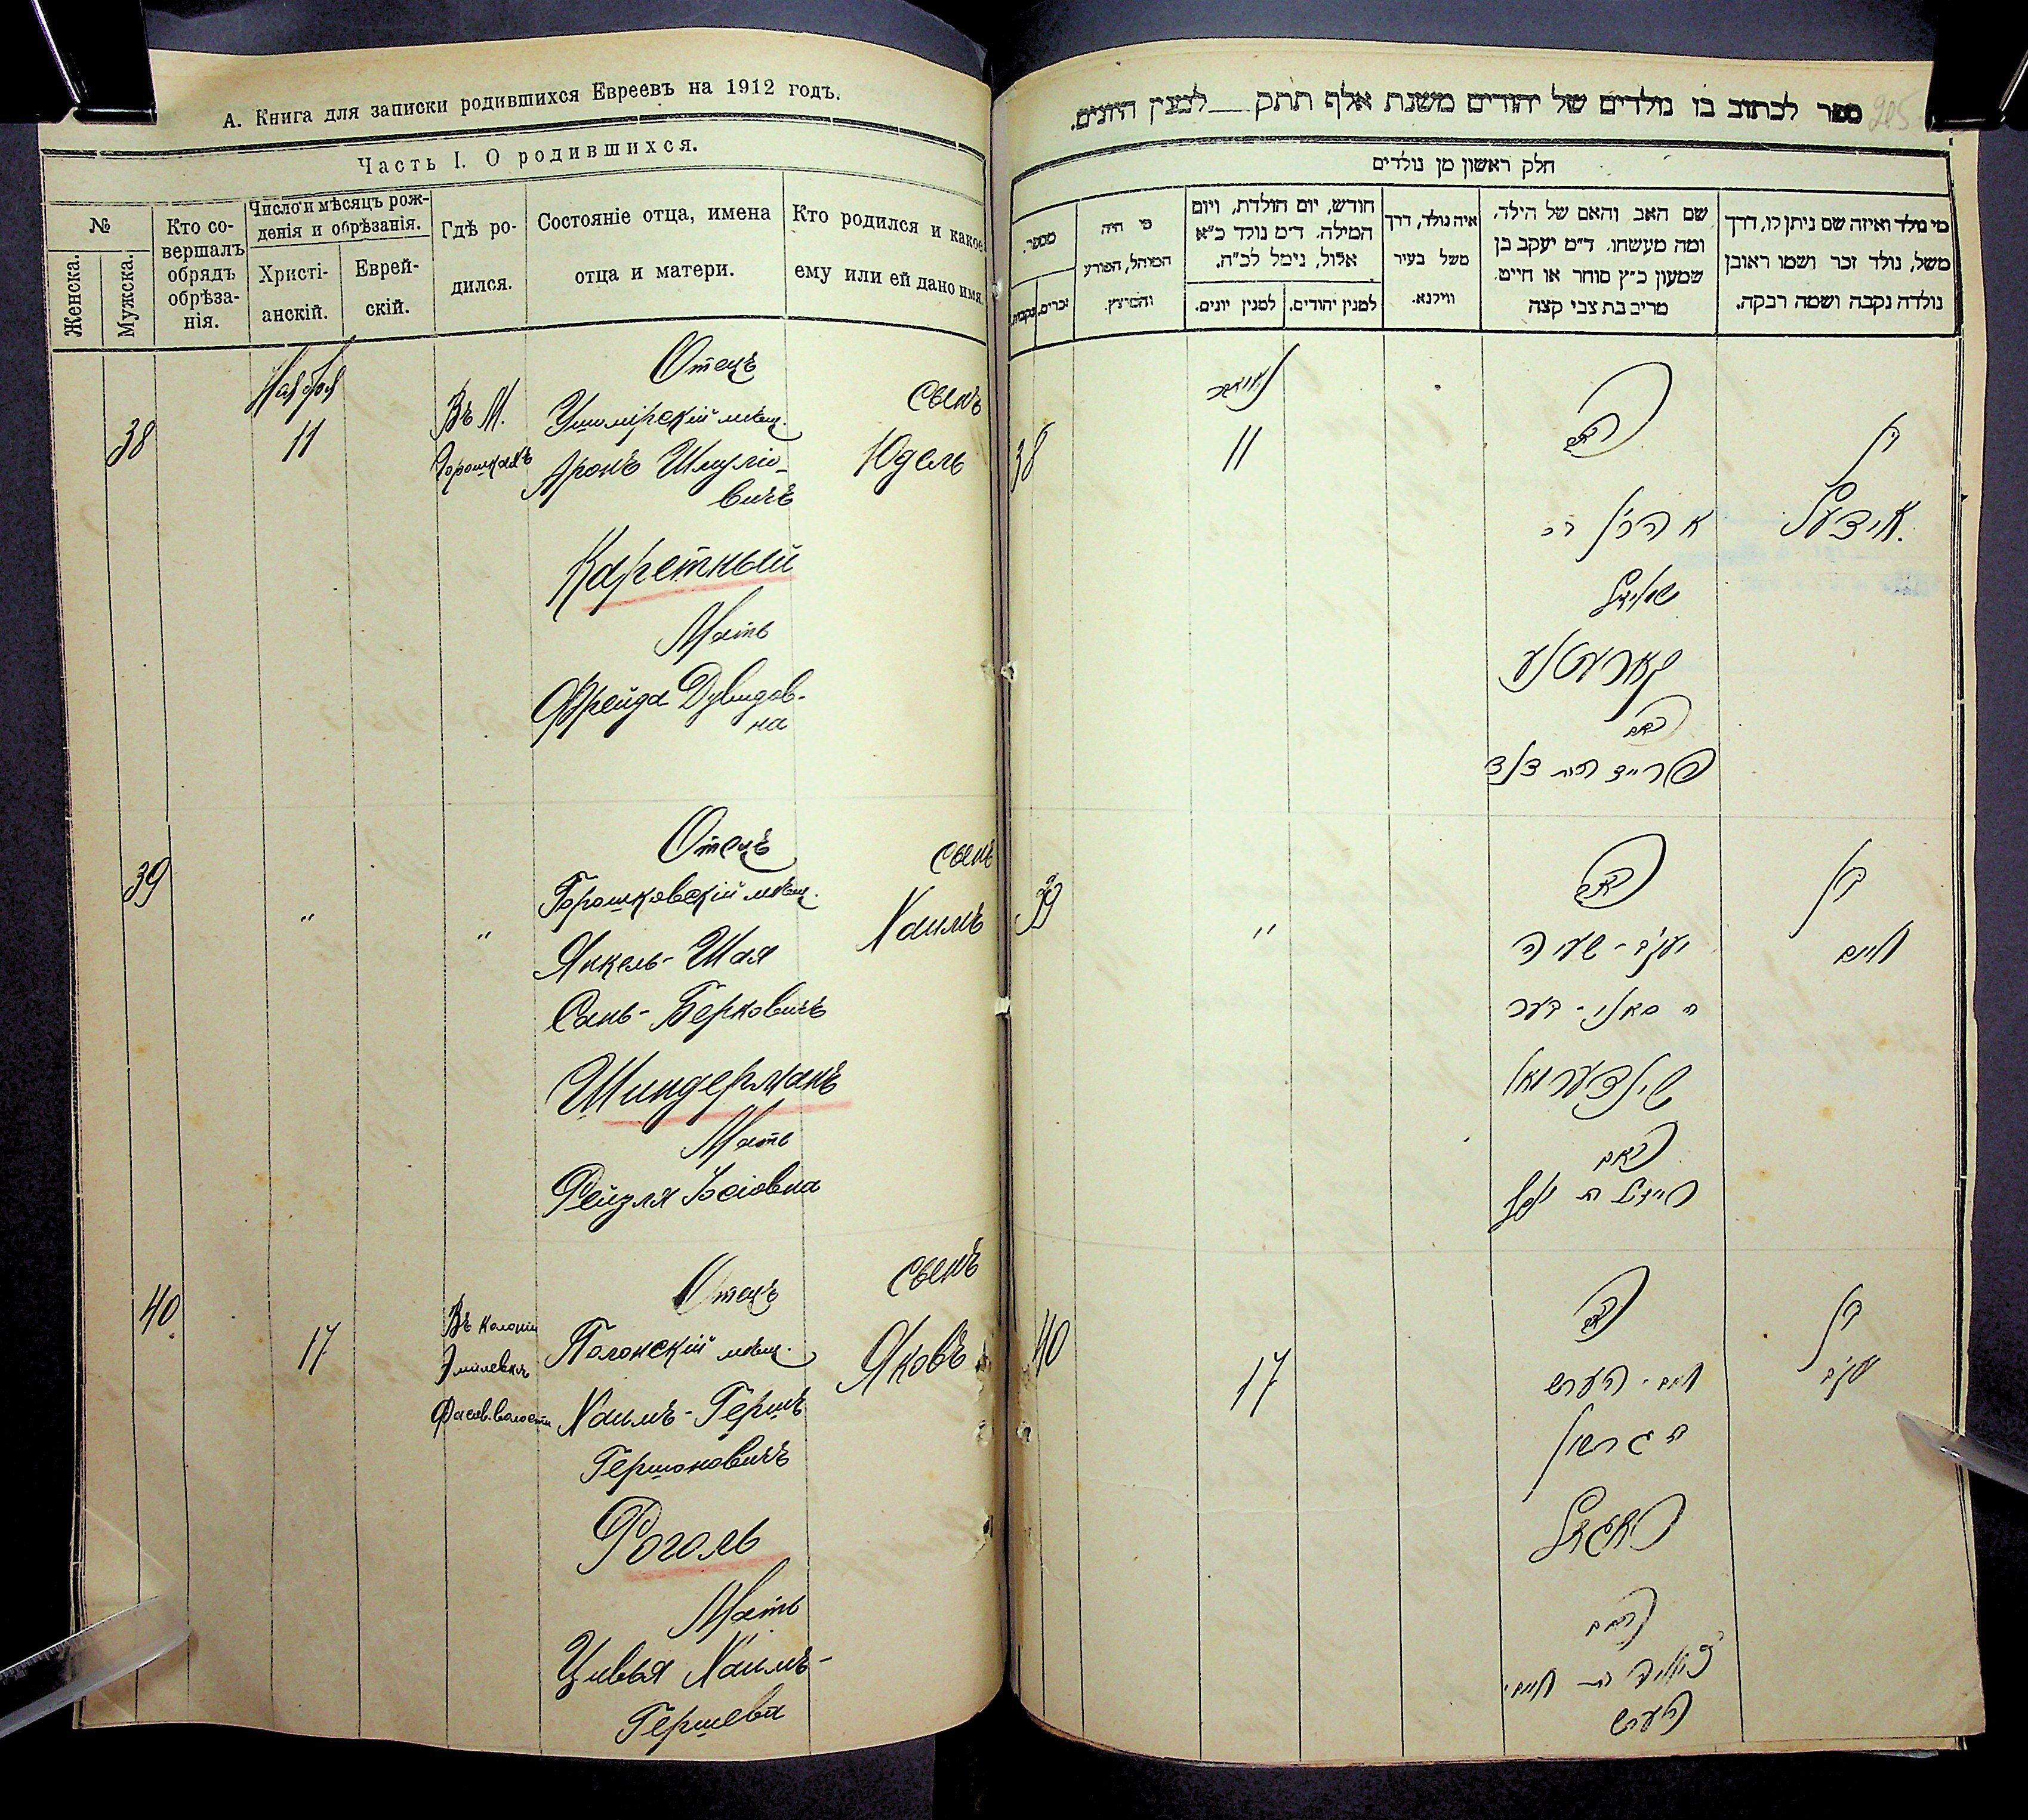 А. Книга для записки родившихся Евреевъ на 1912 годъ.
Часть I. О родившихся.
№
Женска.
Мужска.
Кто со-
вершалъ
обрядъ
обрѣза-
нія.
Число и мѣсяцъ рож-
денія и обрѣзанія.
Христі-
анскій.
Еврей-
скій.
Гдѣ ро-
дился.
Состояніе отца, имена
отца и матери.
Кто родился и какое
ему или ей дано имя.
38
Ноября
11
Въ М.
Горошкахъ
Отецъ
Ушомірскій мѣщ.
Аронъ Шмуліо-
вичъ
Каретный
Мать
Фрейда Дувидов-
на
сынъ
Юдель
39
"
"
Отецъ
Горошковскій мѣщ.
Янкель-Шая
Сань-Берковичъ
Шиндерманъ
Мать
Рейзля Іосіовна
сынъ
Хаимъ
40
17
Въ колоніи
Эмилевкѣ
Фасов. волости
Отецъ
Полонскій мѣщ.
Хаимъ-Гершъ
Гершоновичъ
Роголь
Мать
Цивья Хаимъ-
Гершева
сынъ
Яковъ
ספר לכתוב בו נולדים של יהודים משנת אלף תתק __ למנין היונים.
205
חלק ראשון מן נולדים
מי נולד ואיזה שם ניתן לו, דרך
משל, נולד זכר ושמו ראובן
נולדה נקבה ושמה רבקה.
שם האב והאם של הילד,
ומה מעשהו. ד"מ יעקב בן
שמעון כ"ץ סוחר או חייט.
מרים בת צבי קצה
איה נולד, דרך
משל בעיר
ווילנא.
חודש, יום הולדת, ויום
המילה. ד"מ נולד כ"א
אלול, נימל לכ"ח.
למנין יהודים.
למנין יונים.
מי היה
המוהל, הפורע
והמוצץ.
מספר.
זכרים.
נקבות.
38
11
האב
אהרן ב
שמואל
קארעטנע
האם
פרייד בת דוד
בן
אידעל.
39
"
האב
יעקב-שעיה
ב סאני-בער
שינדערמאן
האם
רייזל ב יוסף
בן
חיים
40
17
האב
חיים-הערש
ב גרשון
ראגאל
האם
צוויה בת חיים-
הערש
בן
יעקב